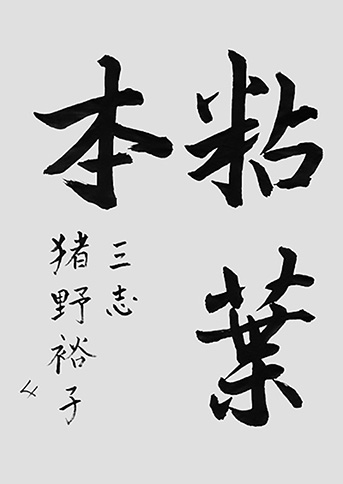 粘葉
本
三志
猪野裕子
4